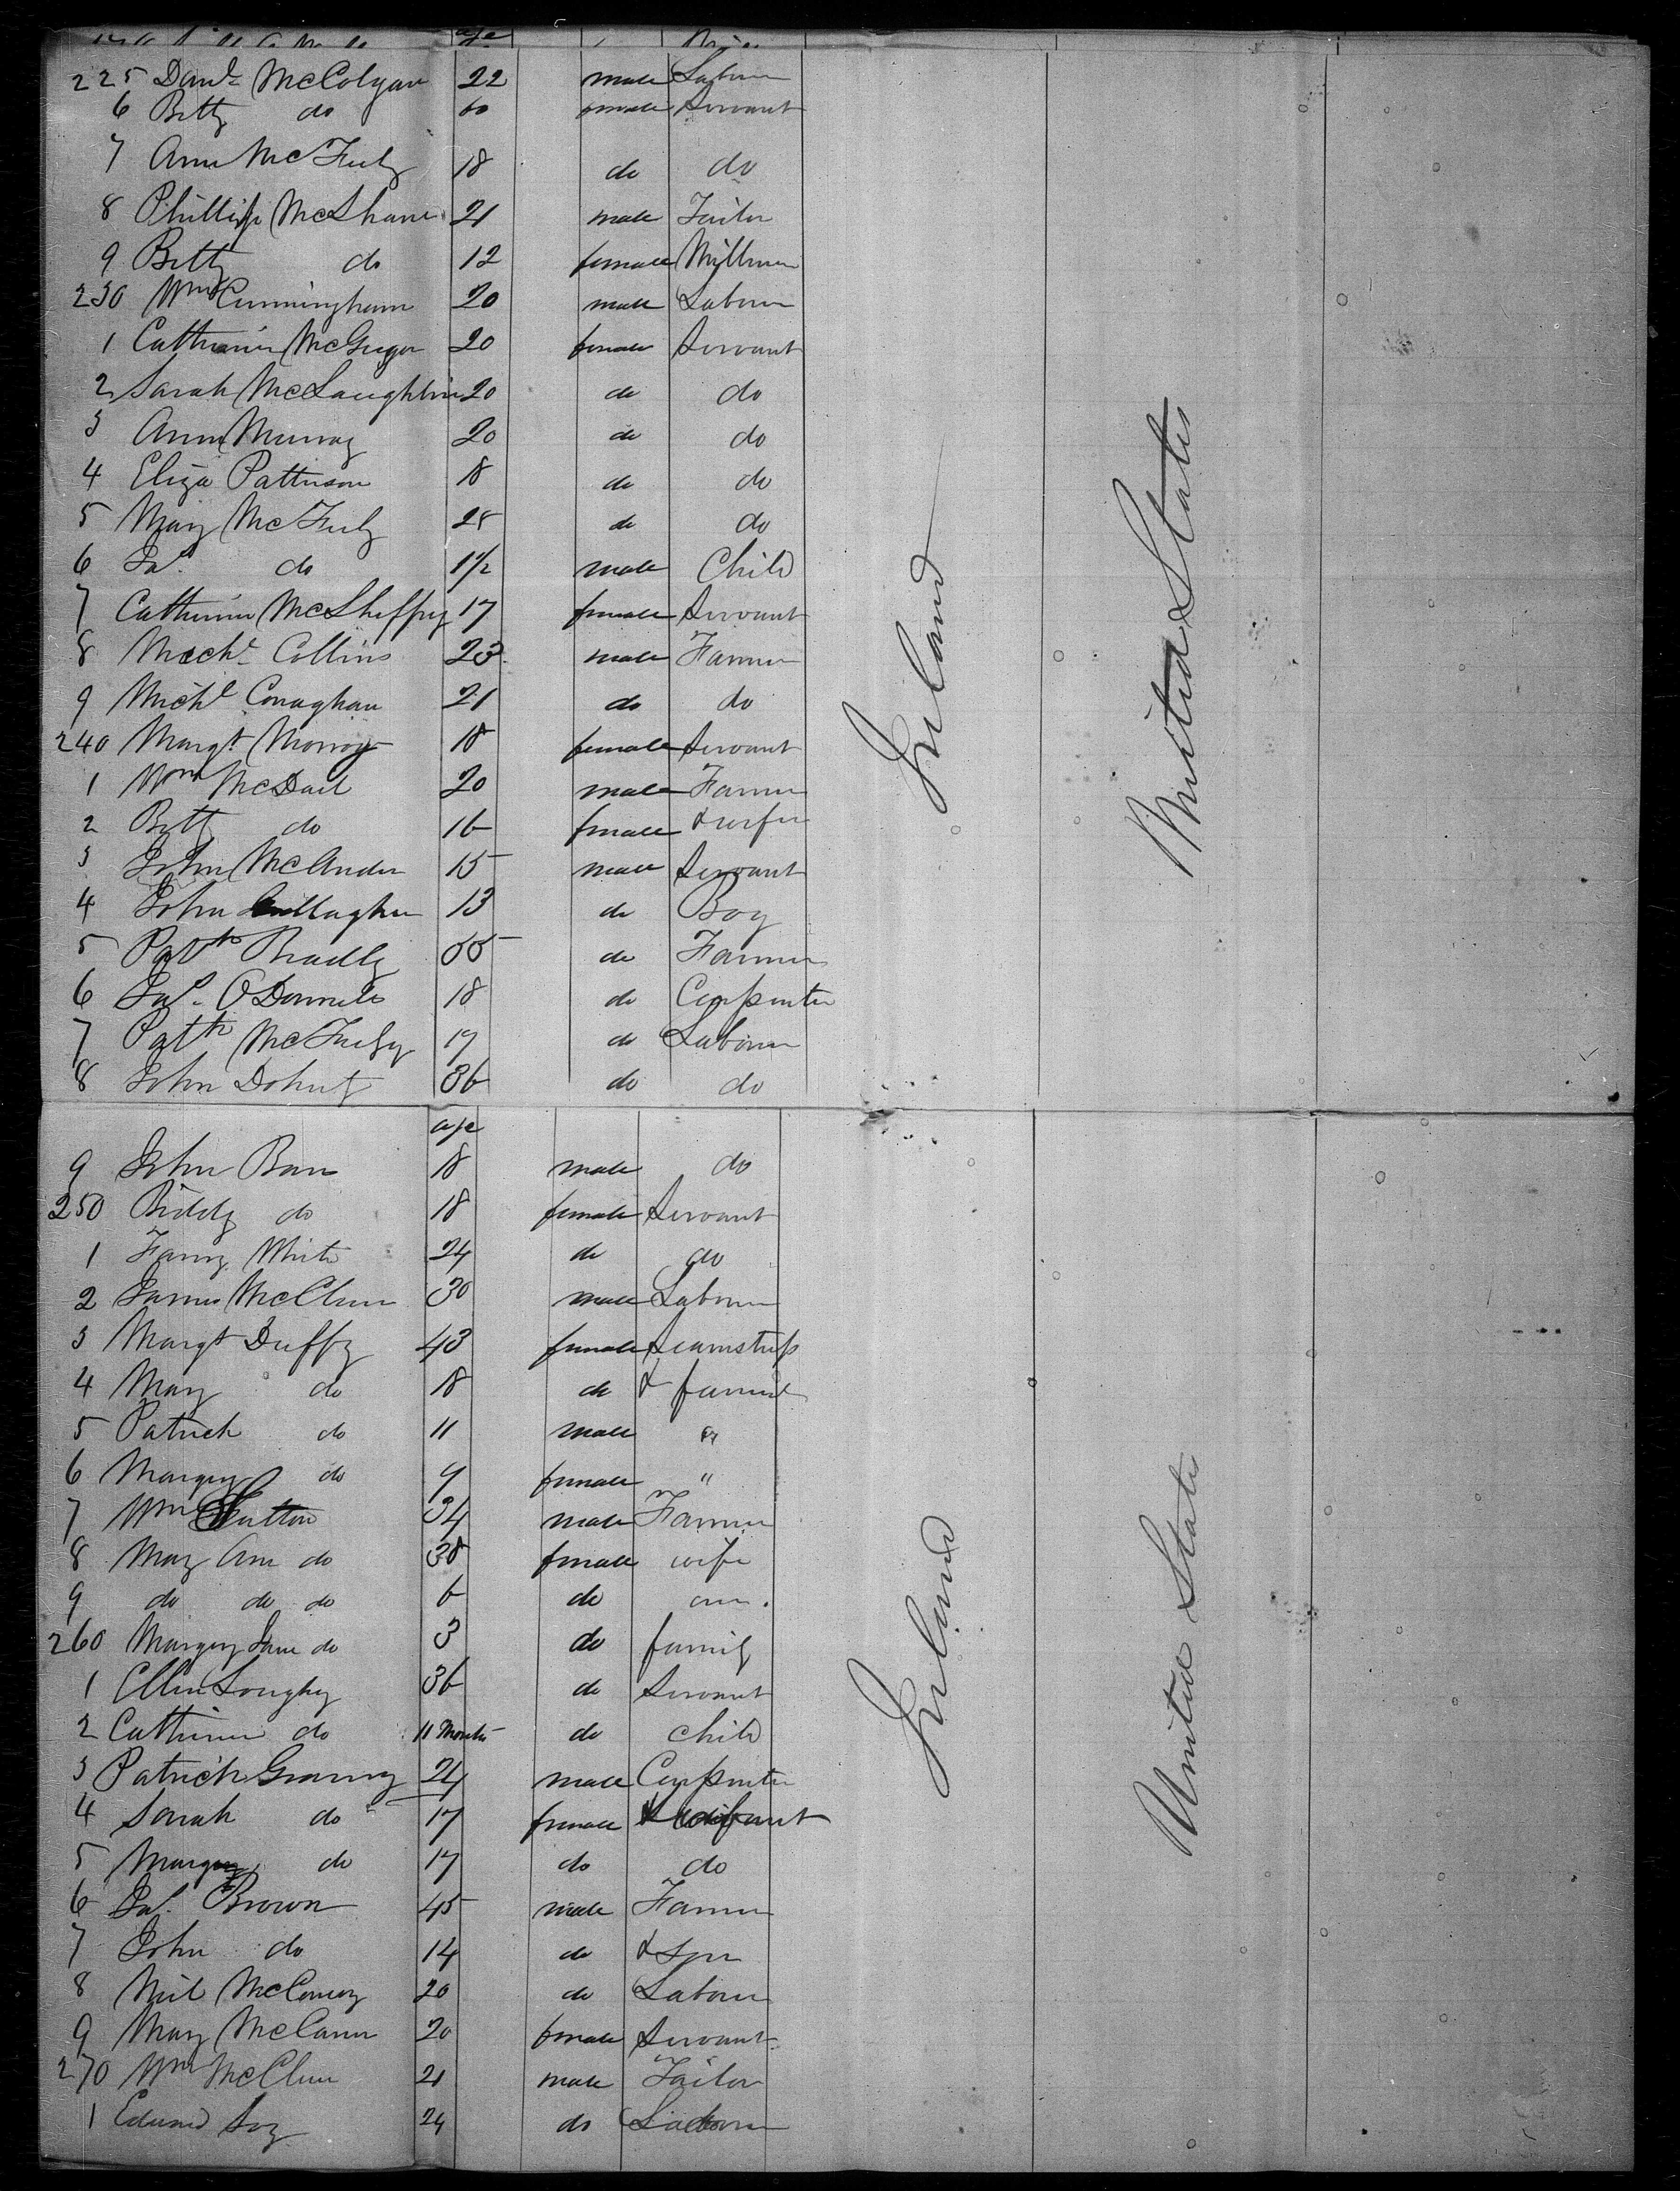 age
225 Danl McColgan 22 male Labourer
6 Betty do 60 female Servant
7 Ann McFeely 18 do do
8 Phillip McShane 21 male Tailor
9 Betty do 12 female
230 Wm Cunningham 20 male Labourer
1 Catherine McGregor 20 female Servant
2 Sarah McLaughlin 20 do do
3 Ann Murray 20 do do
4 Eliza Patterson 18 do do
5 Mary McFeely 28 do do
6 Jas. do 1½ male Child
7 Catherine McSheffry 17 female Servant
8 Michl Collins 23 male Farmer
9 Michl Conaghan 21 do do
240 Margt. 18 female Servant
1 Wm McDaid 20 male Farmer
2 Betty do 16 female & wife
3 John 15 male Servant
4 John Gallagher 13 do Boy
5 Patk Bradly 55 do Farmer
6 Jas. O'Donnell 18 do Carpenter
7 Patk McFeely 19 do Labourer
8 John Doherty 36 do do
Ireland
United States
age
9 John Barr 18 male do
250 Biddy do 18 female Servant
1 Fanny White 24 do do
2 James McClure 30 male Labourer
3 Margt Duffy 43 female Seamstress
4 Mary do 18 do & family
5 Patrick do 11 male "
6 Margery do 9 female "
7 Wm 34 male Farmer
8 Mary Ann do 38 female wife
9 do do do 6 do
260 Margery Jane do 3 do family
1 Ellen Loughry 36 do Servant
2 Catherine do 11 Months do child
3 Patrick 24 male Carpenter
4 Sarah do 17 female
5 Margery do 17 do do
6 Jas. Brown 45 male Farmer
7 John do 14 do & son
8 Neil 20 do Labourer
9 Mary McCann 20 female Servant
270 Wm McClure 21 male Tailor
1 Edward 24 do Labourer
Ireland
United States